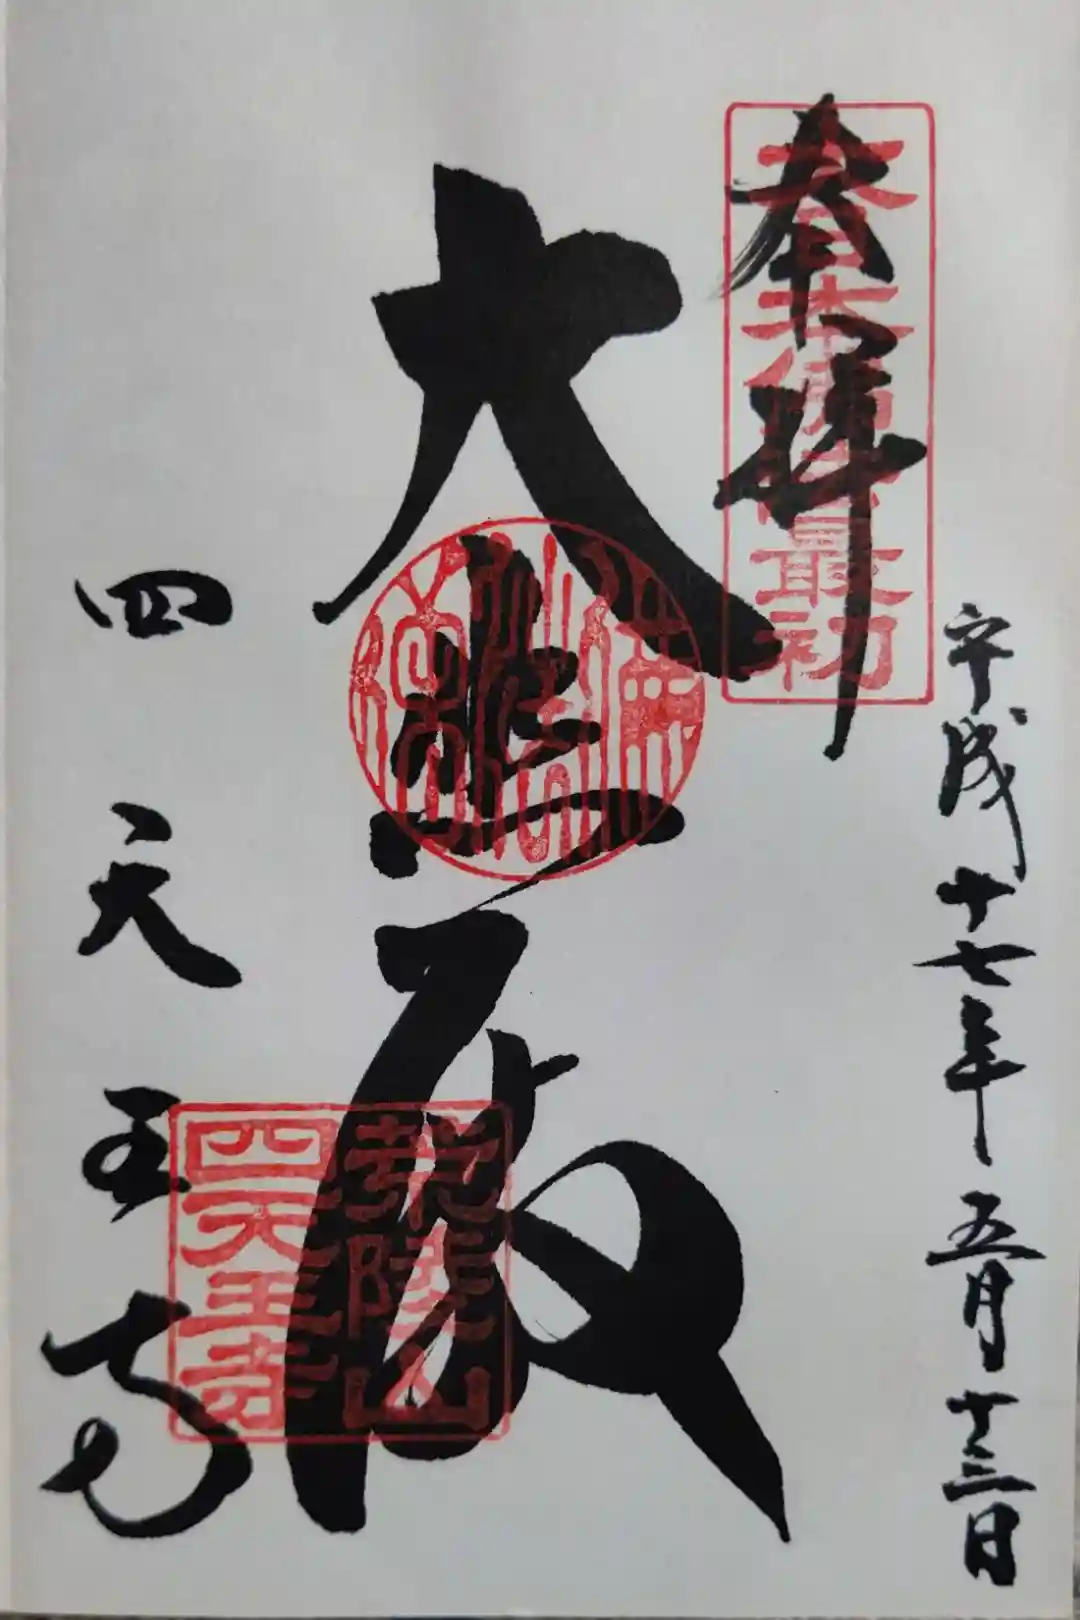 奉拝
大日本佛法最初
平成十七年五月十三日
大悲殿
荒陵山
四天王寺
四天王寺